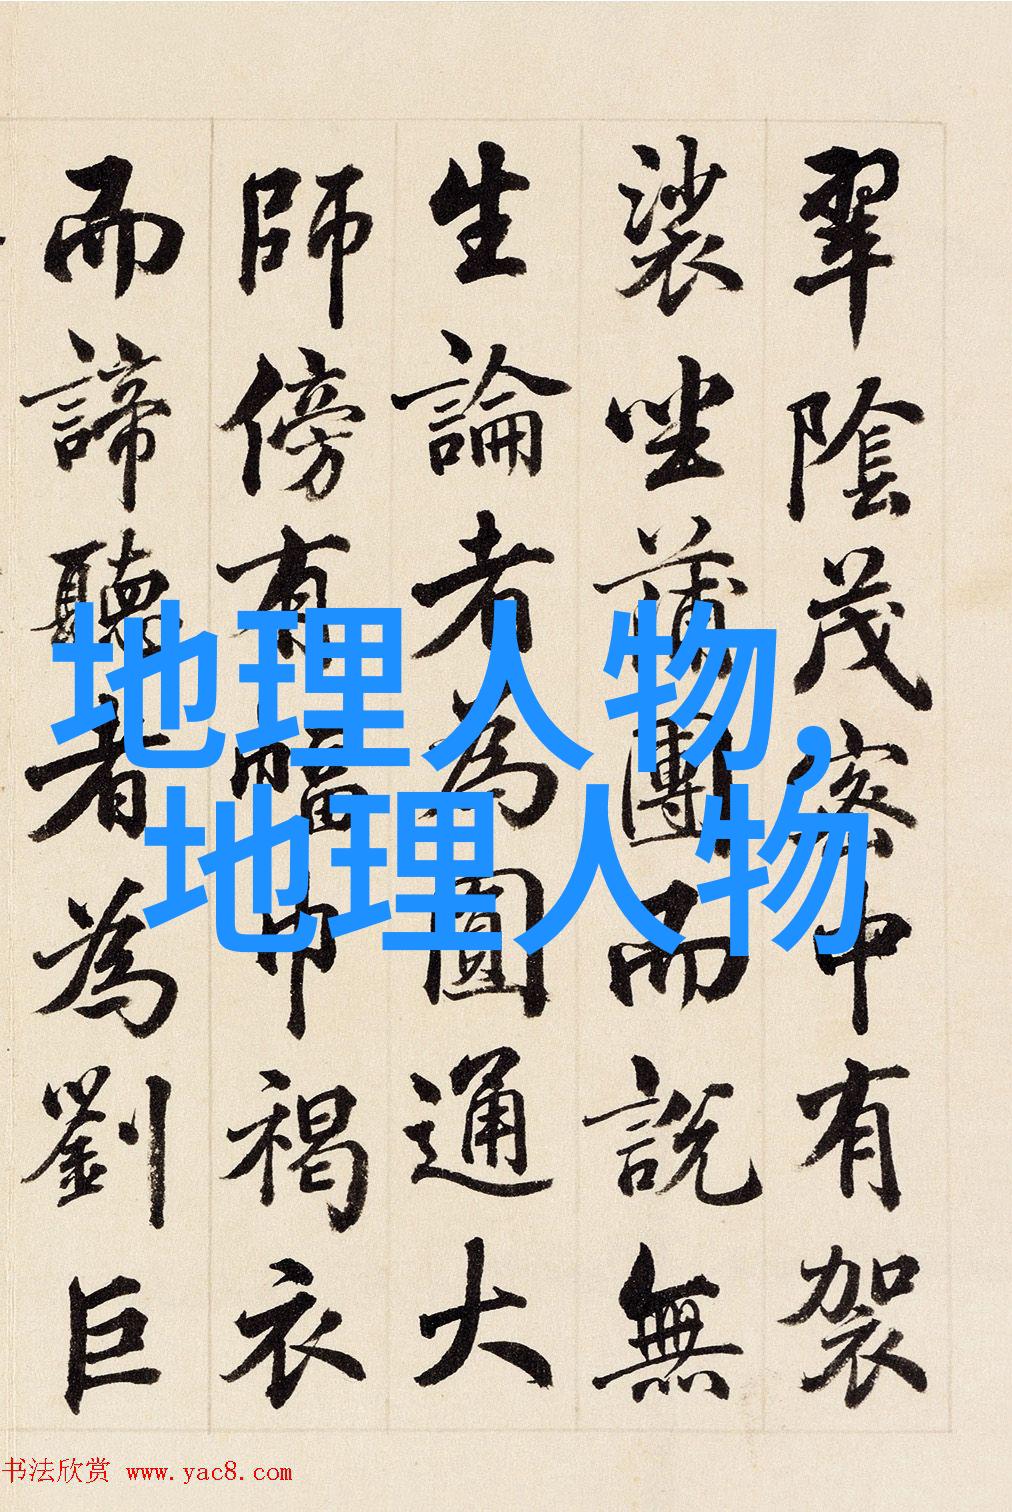 翠陰茂密中有袈
裟坐蒲團而說無
生論者為圓通大
師傍有幅巾褐衣
而諦聽者為劉巨
地理人物,
地理人物
书法欣赏 www.yac8.com